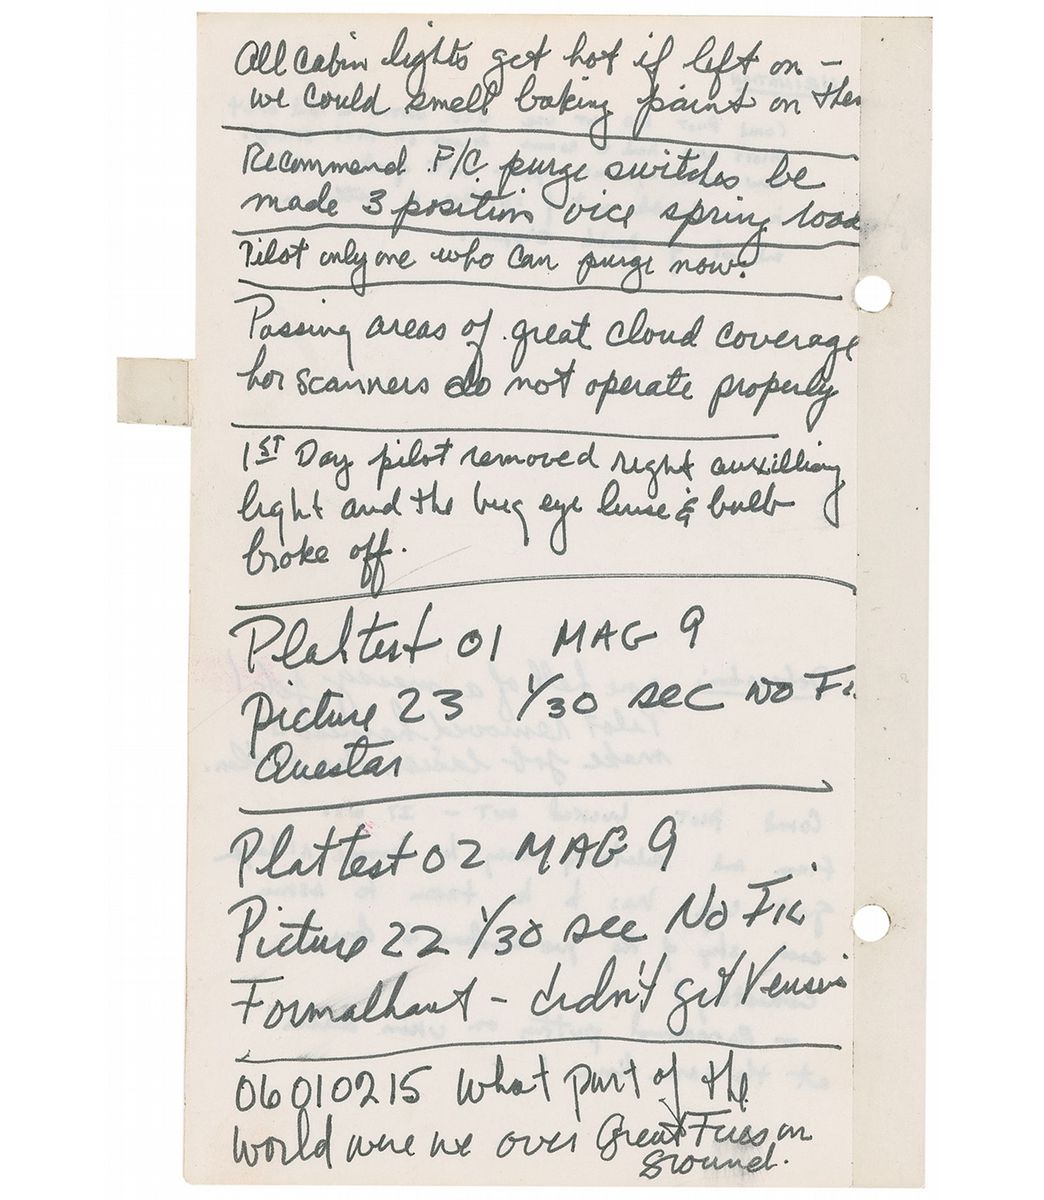 All cabin lights get hot if left on -
we could smell baking paint on them
Recommend F/C purge switches be
made 3 position vice spring load
Pilot only one who can purge now.
Passing areas of great cloud coverage
hor scanners do not operate properly
1ST Day pilot removed right auxilliary
light and the bug eye linse & bulb
broke off.
Plattest 01 MAG 9
Picture 23 1/30 sec NO FIL
Questar
Plattest 02 MAG 9
Picture 22 1/30 sec No FIL
Formalhaut - didn't get Venus
06010215 What part of the
world were we over Great Fires on
ground.